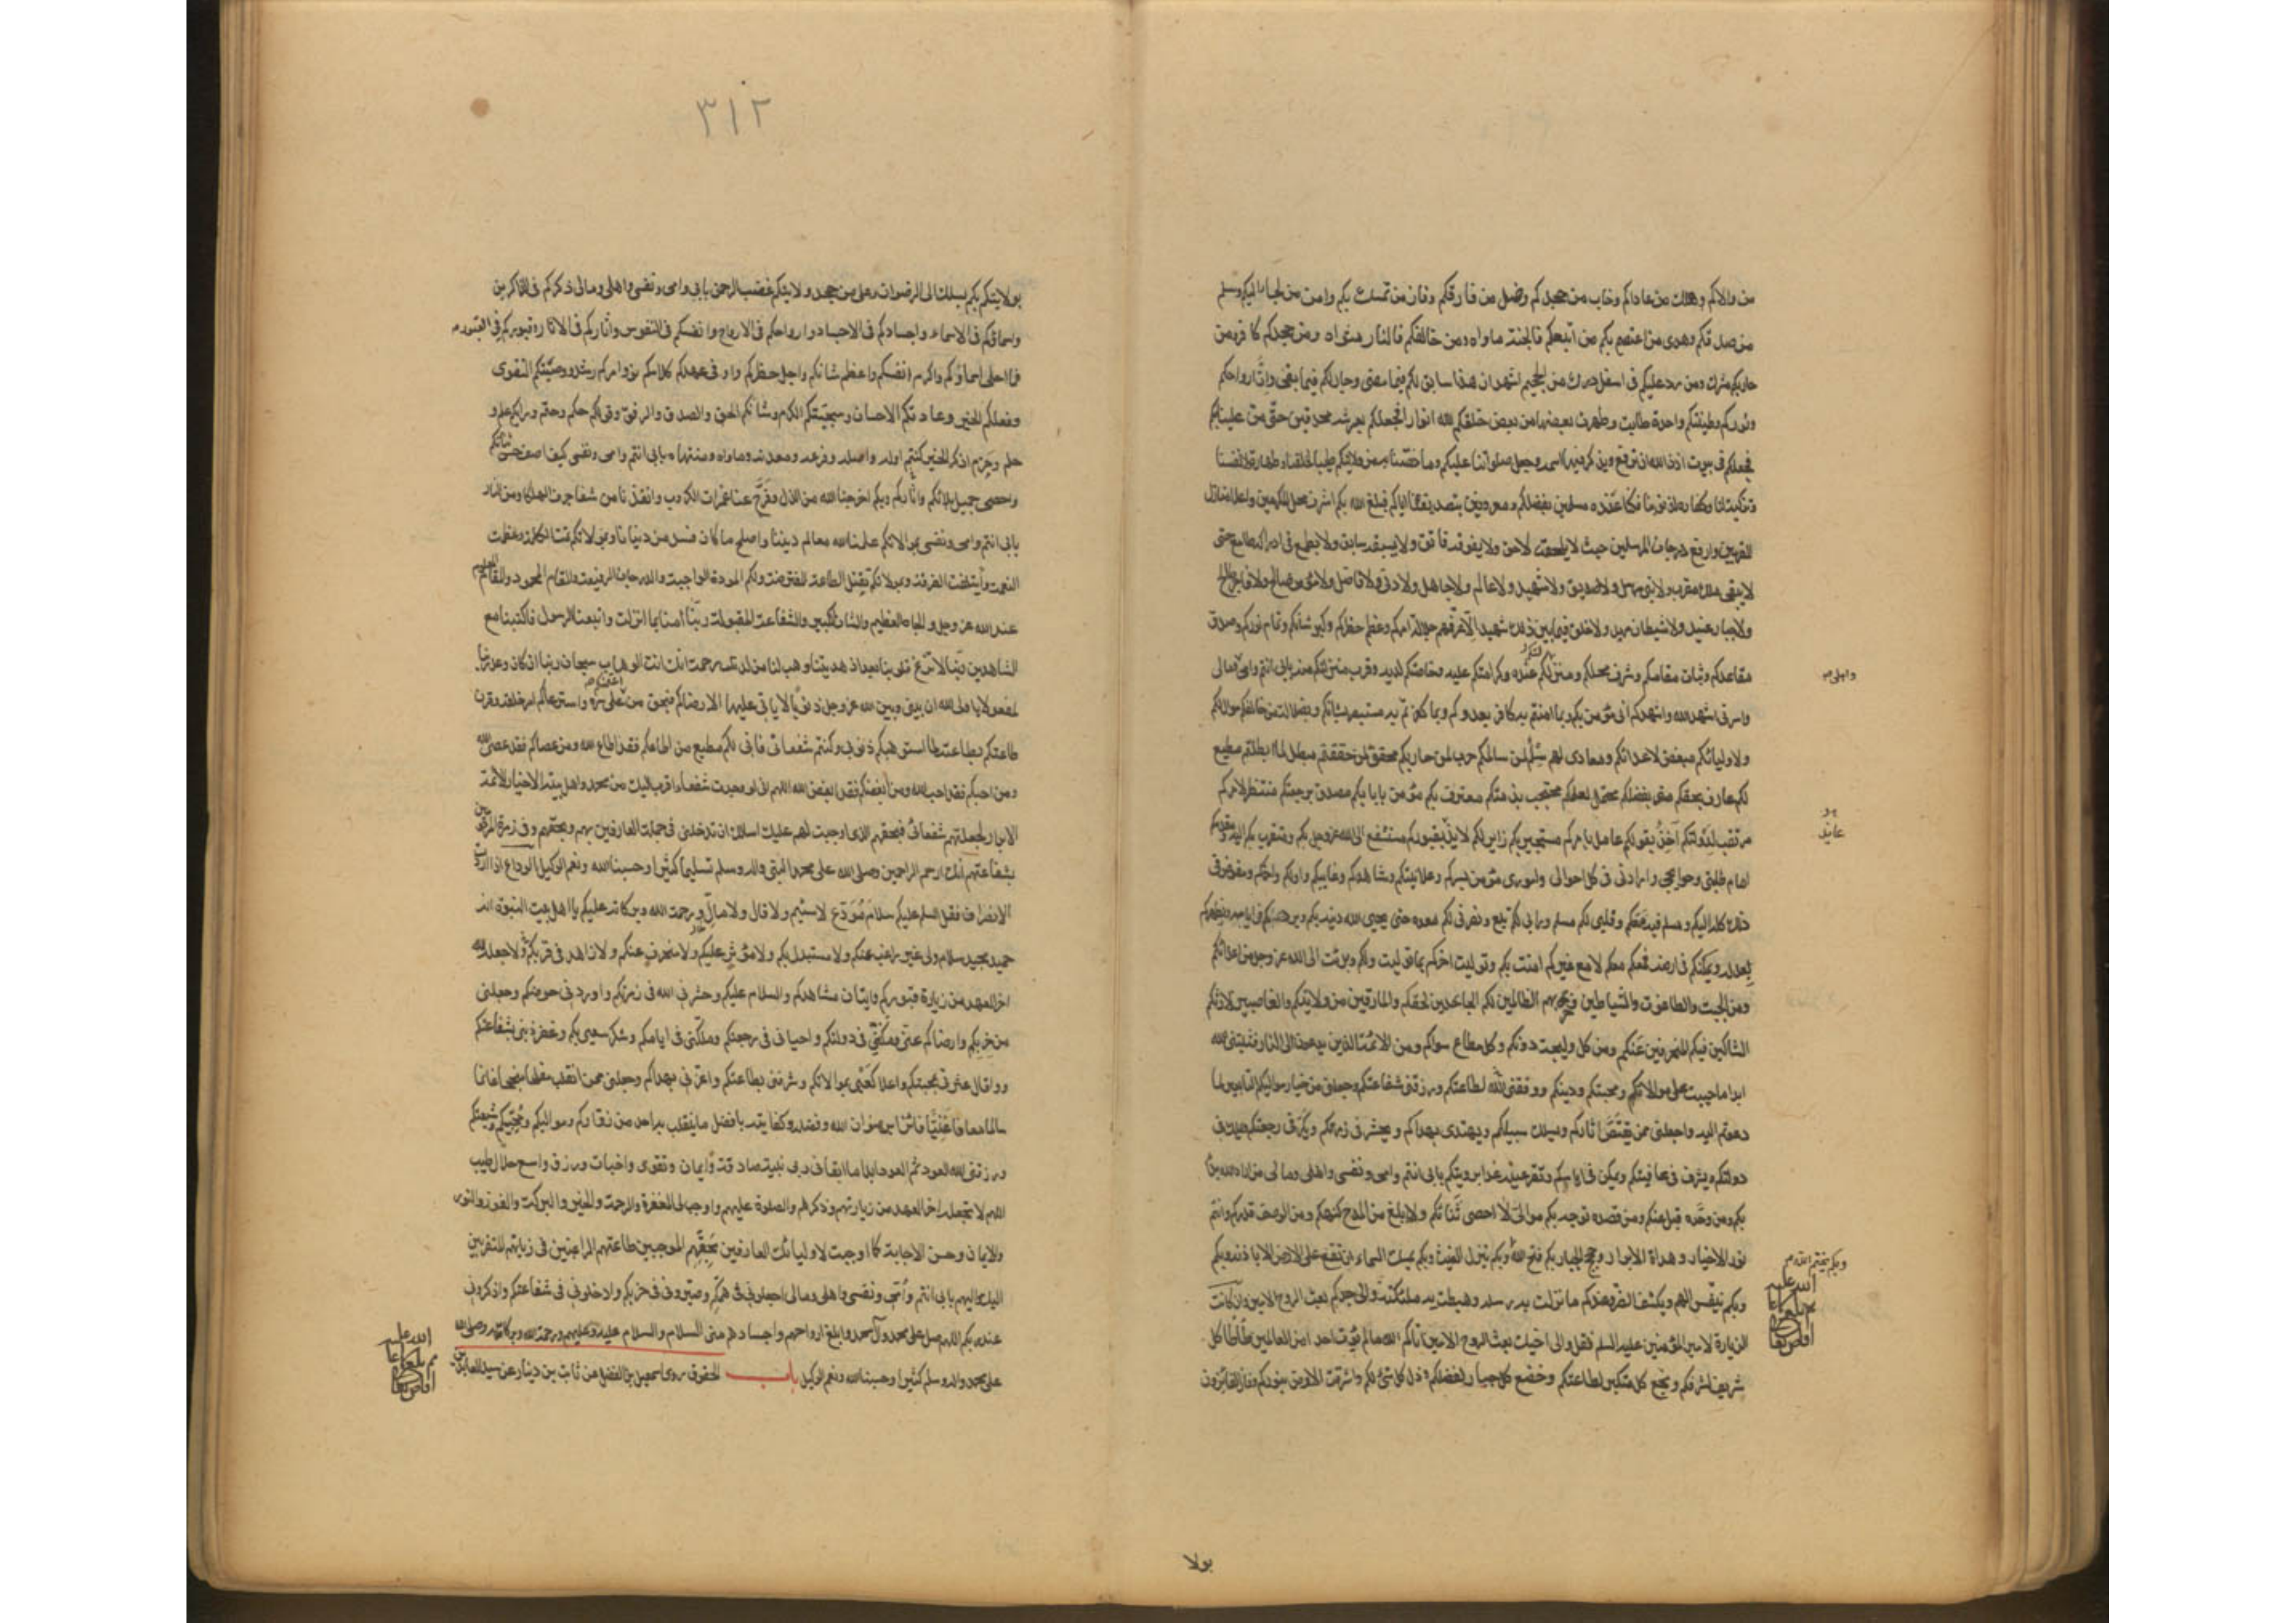 من والاكم وهلك من عاداكم وخاب من جحدكم وضل من فارقكم وفاز من تمسك بكم وامن من لجا اليكم وسلم
من صدقكم وهدى من اعتصم بكم من اتبعكم فالجنة ماواه ومن خالفكم فالنار مثواه ومن جحدكم كافر ومن
حاربكم مشرك ومن رد عليكم في اسفل درك من الجحيم اشهد ان هذا سابق لكم فيما مضى وجار لكم فيما بقى وان ارواحكم
ونوركم وطينتكم واحدة طابت وطهرت بعضها من بعض خلقكم الله انوارا فجعلكم بعرشه محدقين حتى من علينا بكم
فجعلكم في بيوت اذن الله ان ترفع ويذكر فيها اسمه وجعل صلواتنا عليكم وما خصنا به من ولايتكم طيبا لخلقنا وطهارة لانفسنا
وتزكية لنا وكفارة لذنوبنا فكنا عنده مسلمين بفضلكم ومعروفين بتصديقنا اياكم فبلغ الله بكم اشرف محل المكرمين واعلا منازل
المقربين وارفع درجات المرسلين حيث لا يلحقه لاحق ولا يفوقه فائق ولا يسبقه سابق ولا يطمع في ادراكه طامع حتى
لا يبقى ملك مقرب ولا نبي مرسل ولا صديق ولا شهيد ولا عالم ولا جاهل ولا دني ولا فاضل ولا مؤمن صالح ولا فاجر طالح
ولا جبار عنيد ولا شيطان مريد ولا خلق فيما بين ذلك شهيد الا عرفهم جلالة امركم وعظم خطركم وكبر شانكم وتمام نوركم وصدق
مقاعدكم وثبات مقامكم وشرف محلكم ومنزلتكم عنده وكرامتكم عليه وخاصتكم لديه وقرب منزلتكم منه بابي انتم وامي ومالي
واهلي
واسرتي اشهد الله واشهدكم اني مؤمن بكم وبما امنتم به كافر بعدوكم وبما كفرتم به مستبصر بشانكم وبضلالة من خالفكم موال لكم
ولاوليائكم مبغض لاعدائكم ومعادي لهم سلم لمن سالمكم حرب لمن حاربكم محقق لما حققتم مبطل لما ابطلتم مطيع
لكم عارف بحقكم مقر بفضلكم محتمل لعلمكم محتجب بذمتكم معترف بكم مؤمن بايابكم مصدق برجعتكم منتظر لامركم
مرتقب لدولتكم آخذ بقولكم عامل بامركم مستجير بكم زاير لكم لايذ بقبوركم مستشفع الى الله عز وجل بكم ومتقرب بكم اليه ومقدمكم
عايذ
امام طلبتي وحوائجي وارادتي في كل احوالي واموري مؤمن بسركم وعلانيتكم وشاهدكم وغايبكم واولكم واخركم ومفوض في
ذلك كله اليكم ومسلم فيه معكم وقلبي لكم مسلم ورايي لكم تبع ونصرتي لكم معده حتى يحيي الله دينه بكم ويردكم في ايامه ويظهركم
لعدله ويمكنكم في ارضه فمعكم معكم لا مع غيركم امنت بكم وتوليت اخركم بما توليت به اولكم وبرئت الى الله عز وجل من اعدائكم
ومن الجبت والطاغوت والشياطين وحزبهم الظالمين لكم الجاحدين لحقكم والمارقين من ولايتكم والغاصبين لارثكم
الشاكين فيكم المنحرفين عنكم ومن كل وليجة دونكم وكل مطاع سواكم ومن الائمة الذين يدعون الى النار فثبتني الله
ابدا ما حييت على موالاتكم ومحبتكم ودينكم ووفقني الله لطاعتكم ورزقني شفاعتكم وجعلني من خيار مواليكم التابعين لما
دعوتم اليه واجعلني ممن يقتص اثاركم ويسلك سبيلكم ويهتدى بهداكم ويحشر في زمرتكم ويكر في رجعتكم ويملك في
دولتكم ويشرف في عافيتكم ويمكن في ايامكم وتقر عينه غدا برويتكم بابي انتم وامي ونفسي واهلي ومالي من اراد الله بدا
بكم ومن وحده قبل عنكم ومن قصده توجه بكم موالي لا احصي ثنائكم ولا ابلغ من المدح كنهكم ومن الوصف قدركم وانتم
نور الاخيار وهداة الابرار وحجج الجبار بكم فتح الله وبكم ينزل الغيث وبكم يمسك السماء ان تقع على الارض الا باذنه وبكم
وبكم يختم الله
وبكم ينفس الهم ويكشف الضر وعندكم ما نزلت به رسله وهبطت به ملئكته والى جدكم بعث الروح الامين وان كانت
الزيارة لامير المؤمنين عليه السلم فقل والى اخيك بعث الروح الامين آتاكم الله ما لم يؤت احدا من العالمين طأطأ كل
شريف لشرفكم وبخع كل متكبر لطاعتكم وخضع كل جبار لفضلكم وذل كل شئ لكم واشرقت الارض بنوركم وفاز الفائزون
بولا
٣١٢
بولايتكم بكم يسلك الى الرضوان وعلى من جحد ولايتكم غضب الرحمن بابي وامي ونفسي واهلي ومالي ذكركم في الذاكرين
واسماؤكم في الاسماء واجسادكم في الاجساد وارواحكم في الارواح وانفسكم في النفوس واثاركم في الاثار وقبوركم في القبور
فما احلى اسماؤكم واكرم انفسكم واعظم شانكم واجل خطركم واوفى عهدكم كلامكم نور وامركم رشد ووصيتكم التقوى
وفعلكم الخير وعادتكم الاحسان وسجيتكم الكرم وشانكم الحق والصدق والرفق وقولكم حكم وحتم ورايكم علم و
حلم وحزم ان ذكر الخير كنتم اوله واصله وفرعه ومعدنه وماواه ومنتهاه بابي انتم وامي ونفسي كيف اصف حسن ثنائكم
واحصي جميل بلائكم وبكم اخرجنا الله من الذل وفرج عنا غمرات الكروب وانقذنا من شفا جرف الهلكات ومن النار
بابي انتم وامي ونفسي بموالاتكم علمنا الله معالم ديننا واصلح ما كان فسد من دنيانا وبموالاتكم تمت الكلمة وعظمت
النعمة وأيتلفت الفرقة وبموالاتكم تقبل الطاعة المفترضة ولكم المودة الواجبة والدرجات الرفيعة والمقام المحمود والمقام المعلوم
عند الله عز وجل والجاه العظيم والشان الكبير والشفاعة المقبولة ربنا آمنا بما انزلت واتبعنا الرسول فاكتبنا مع
الشاهدين ربنا لا تزغ قلوبنا بعد اذ هديتنا وهب لنا من لدنك رحمة انك انت الوهاب سبحان ربنا ان كان وعد ربنا
لمفعولا يا ولي الله ان بيني وبين الله عز وجل ذنوبا لا ياتي عليها الا رضاكم فبحق من ائتمنكم على سره واسترعاكم امر خلقه وقرن
طاعتكم بطاعته لما استوهبتم ذنوبي وكنتم شفعائي فاني لكم مطيع من اطاعكم فقد اطاع الله ومن عصاكم فقد عصى الله
ومن احبكم فقد احب الله ومن ابغضكم فقد ابغض الله اللهم اني لو وجدت شفعاء اقرب اليك من محمد واهل بيته الاخيار الائمة
الابرار لجعلتهم شفعائي فبحقهم الذي اوجبت لهم عليك اسئلك ان تدخلني في جملة العارفين بهم وبحقهم وفي زمرة المرحومين
بشفاعتهم انك ارحم الراحمين وصلى الله على محمد النبي وآله وسلم تسليما كثيرا وحسبنا الله ونعم الوكيل الوداع اذا اردت
الانصراف فقل السلم عليكم سلام مودع لا سئم ولا قال ولا مال ورحمة الله وبركاته عليكم يا اهل بيت النبوة انه
حميد مجيد سلام ولي غير راغب عنكم ولا مستبدل بكم ولا مؤثر عليكم ولا منحرف عنكم ولا زاهد في قربكم لا جعله الله
اخر العهد من زيارة قبوركم واتيان مشاهدكم والسلام عليكم وحشرني الله في زمرتكم واوردني حوضكم وجعلني
من حزبكم وارضاكم عني ومكنني في دولتكم واحياني في رجعتكم وملكني في ايامكم وشكر سعيي بكم وغفر ذنبي بشفاعتكم
واقال عثرتي بمحبتكم واعلا كعبي بموالاتكم وشرفني بطاعتكم واعزني بهداكم وجعلني ممن انقلب مفلحا منجحا غانما
سالما معافا غنيا فائزا برضوان الله وفضله وكفايته بافضل ما ينقلب به احد من زواركم ومواليكم ومحبيكم وشيعتكم
ورزقني الله العود ثم العود ابدا ما ابقاني ربي بنية صادقة وايمان وتقوى واخبات ورزق واسع حلال طيب
اللهم لا تجعله اخر العهد من زيارتهم وذكرهم والصلوة عليهم واوجب لي المغفرة والرحمة والخير والبركة والفوز والنور
والايمان وحسن الاجابة كما اوجبت لاوليائك العارفين بحقهم الموجبين طاعتهم الراغبين في زيارتهم المتقربين
اليك واليهم بابي انتم وأمي ونفسي واهلي ومالي اجعلوني في همكم وصيروني في حزبكم وادخلوني في شفاعتكم واذكروني
عند ربكم اللهم صل على محمد وآل محمد وابلغ ارواحهم واجسادهم مني السلام والسلام عليه وعليهم ورحمة الله وبركاته وصلى الله
على محمد وآله وسلم كثيرا وحسبنا الله ونعم الوكيل باب الحقوق روى اسمعيل بن الفضل عن ثابت بن دينار عن سيد العابدين